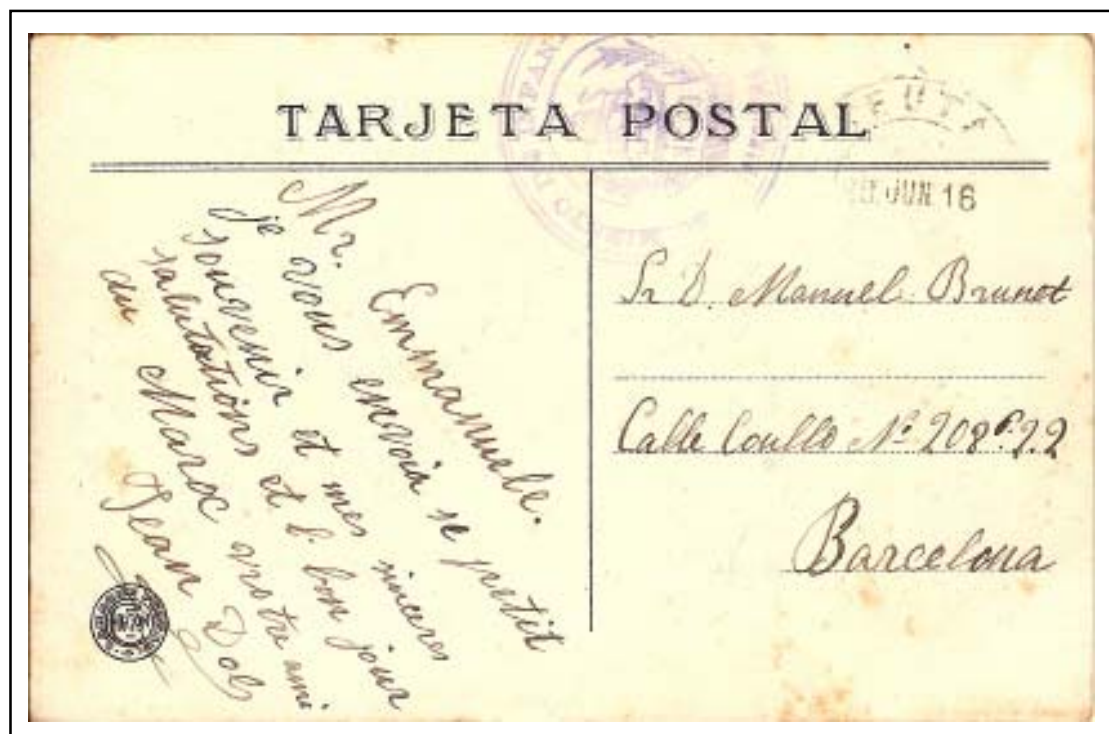 TARJETA POSTAL
CEUTA
JUN. 16
Mr. Emmanuele.
je vous envoia se petit
souvenir et mes sinceres
salutatións et l. bon jour
du Maroc vrotre ami
Jean Dols
Sr D. Manuel Brunot
Calle Coullo Nº 208 P. 2.2
Barcelona